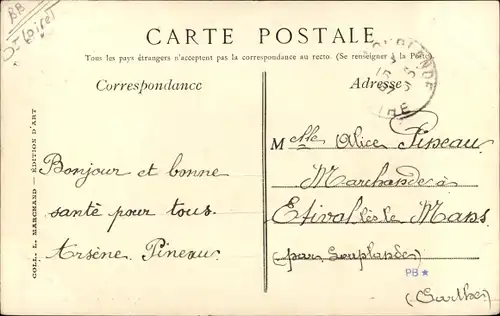 BB
CARTE POSTALE
Tous les pays étrangers n'acceptent pas la correspondance au recto. (Se renseigner à la Poste)
Correspondance
Adresse
Bonjour et bonne
santé pour tous.
Arsène Pineau
Melle Alice Pineau
Marchande à
Etival lès le Mans
(par Souplandes)
(Sarthe)
PB★
COLL. L. MARCHAND — ÉDITION D'ART